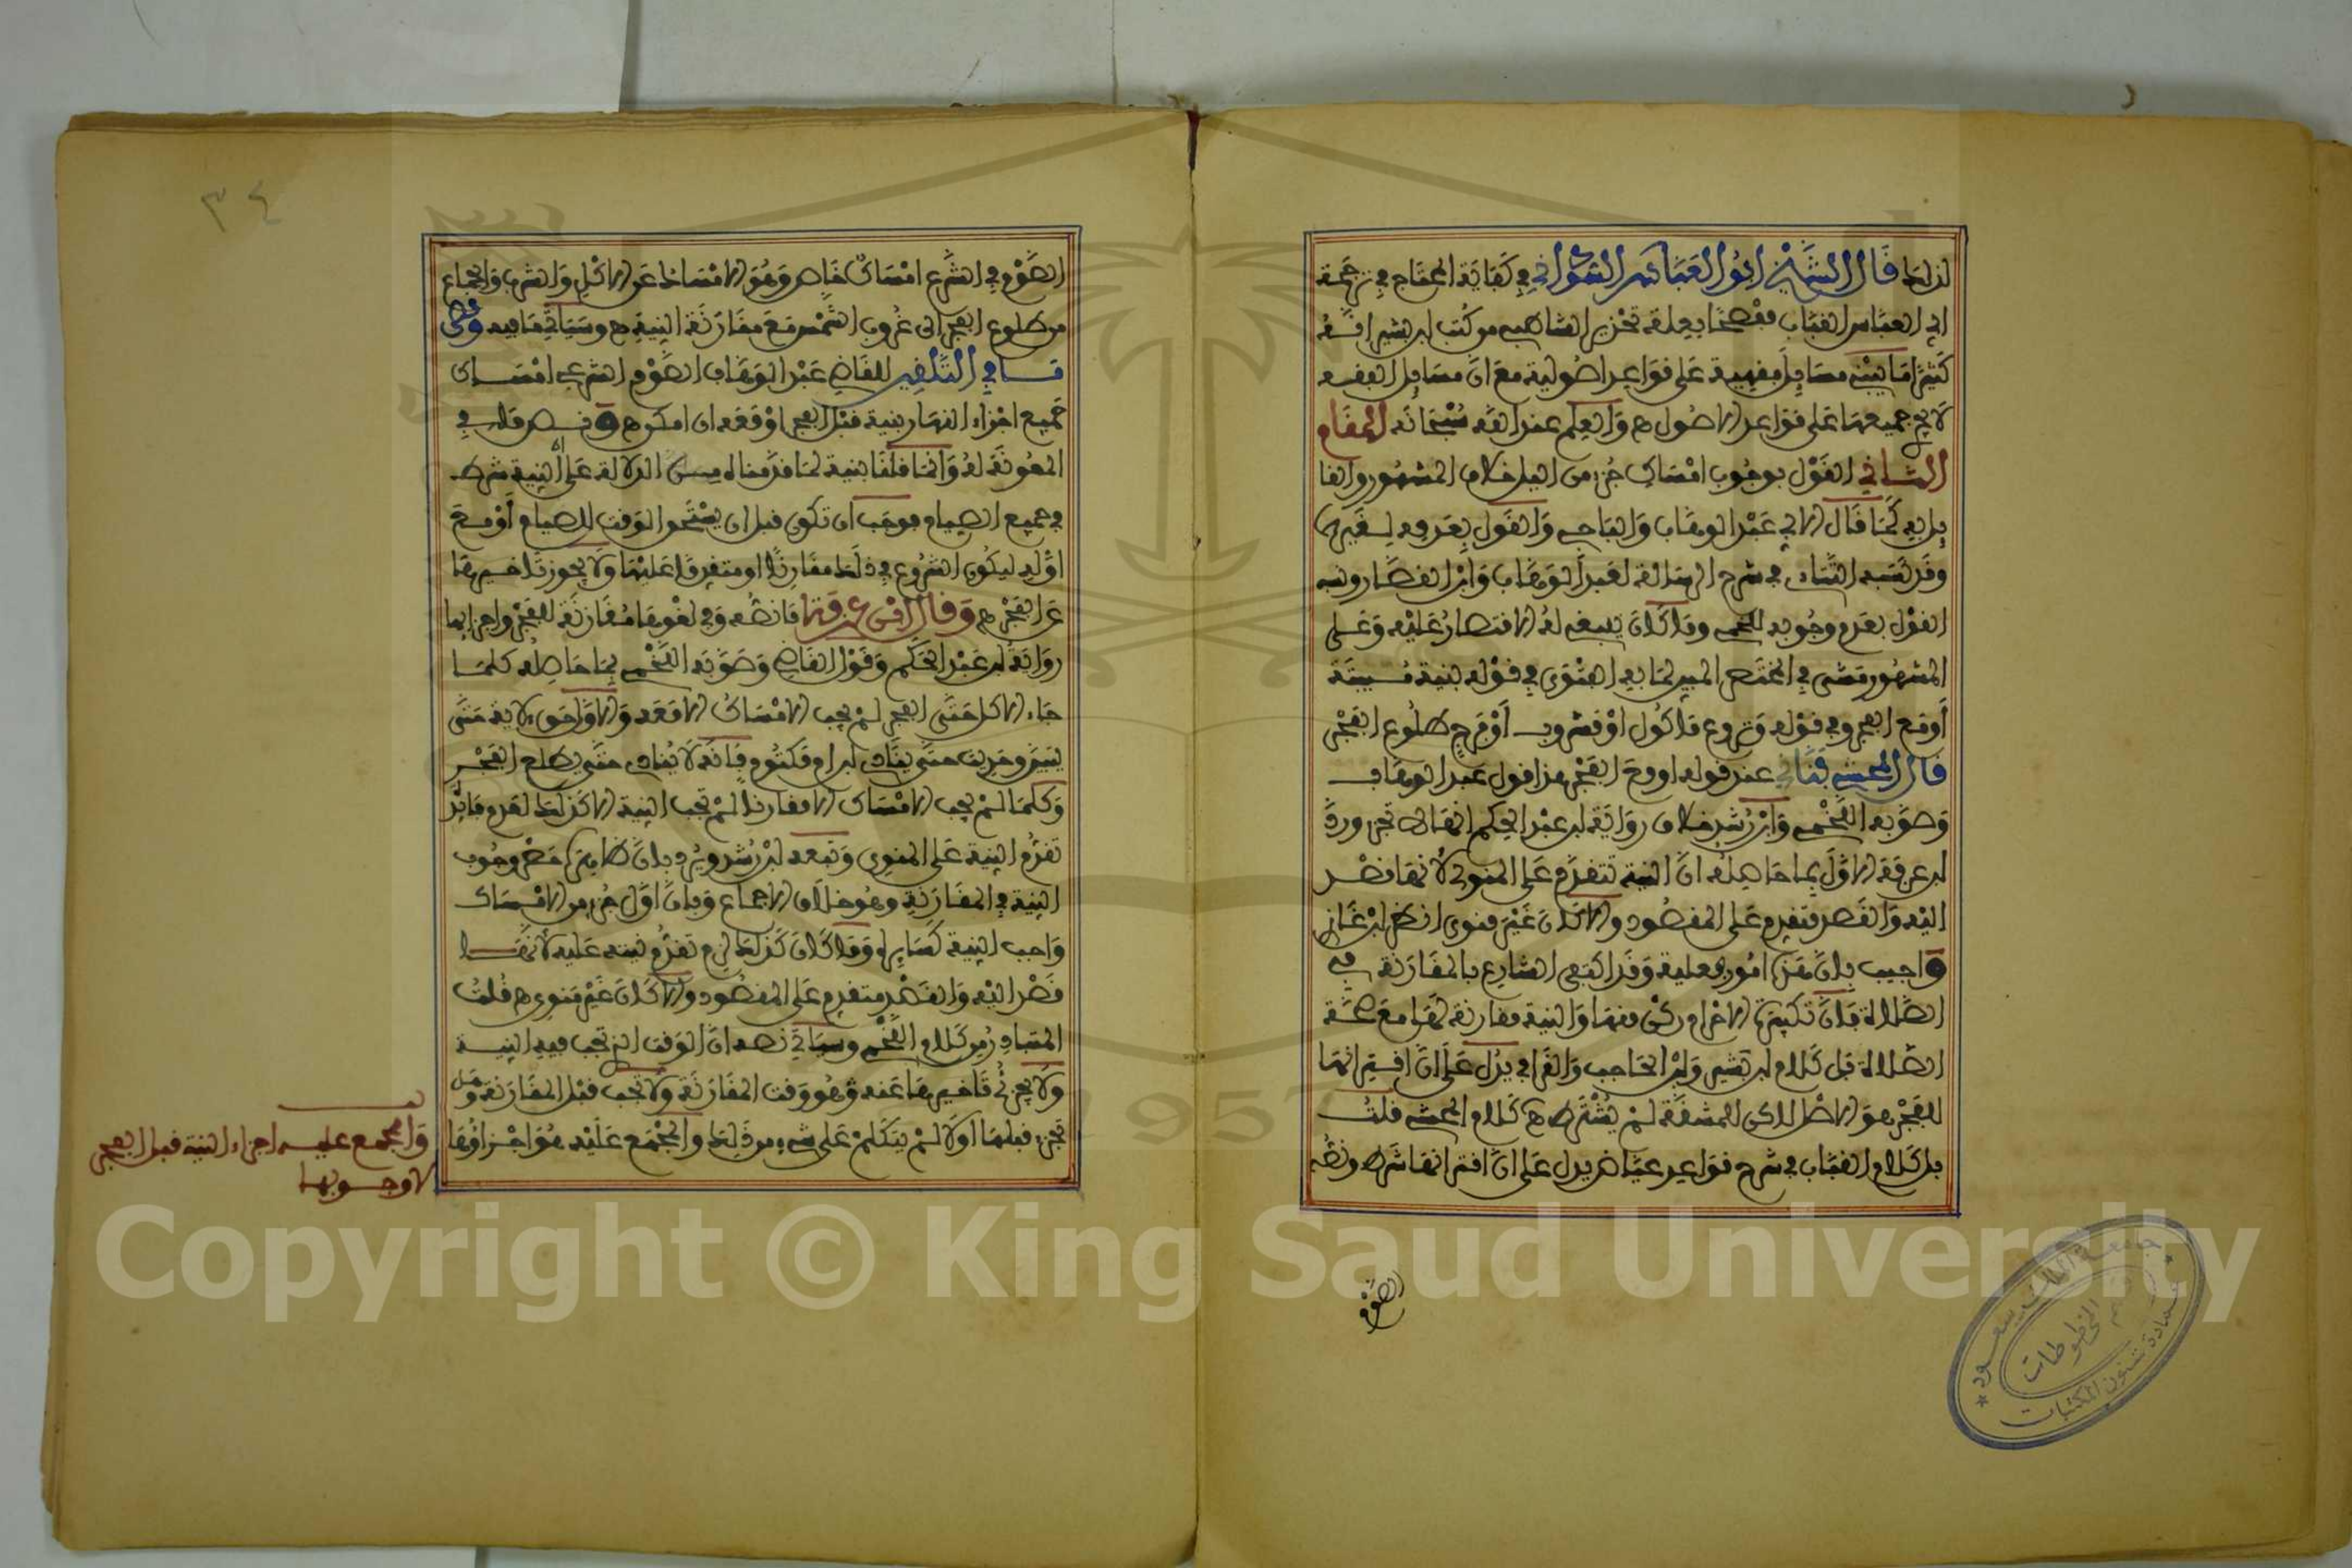 لذلك قال الشيخ ابو العباس السوداني في كفاية المحتاج في ترجمة
ابي العباس القباب مفصحا بعلمه تحرير الشاطبي من كتب ابن بشير افقه
كثيرا ما يبني مسايل فقهية على قواعد اصولية مع ان مسايل الفقه
لا يجي جميعها على قواعد الاصول ه والعلم عند الله سبحانه المقام
الثاني القول بوجوب امساك جزء من الليل خلاف المشهور والقا
يل به كما قال الابي عبد الوهاب والباجي والقول بعدمه لغيرهما
وقد نسبه التتاءي في شرح الرسالة لعبد الوهاب وابن القصار ونسب
القول بعدم وجوبه للخمي وما كان ينبغي له الاقتصار عليه وعلى
المشهور مشى في المختصر المبين لما به الفتوى في قوله بنية مبيتة
أو مع الفجر وفي قوله ونزع ماكول او مشروب أو فرج طلوع الفجر
قال المحشي بناني عند قوله او مع الفجر هذا قول عبد الوهاب
وصوبه اللخمي وابن رشد خلاف رواية ابن عبد الحكم انها لا تجزي ورد
ابن عرفة الاول بما حاصله ان النية تتقدم على المنوي لانها قصد
اليه والقصد متقدم على المقصود والا كان غير منوي انظر ابن غازي
واجيب بان هذه امور جعلية وقد اكتفى الشارع بالمقارنة في
الصلاة فان تكبيرة الاحرام ركن منها والنية مقارنة لها مع صحة
الصلاة قبل كلام ابن بشير وابن الحاجب والقرافي يدل على ان اقترانها
للفجر هو الاصل لاكن للمشقة لم يشترط ه كلام المحشي قلت
بل كلام القباب في شرح قواعد عياض يدل على ان اقترانها شرط ونصه
الصوم
٣٤
الصوم في الشرع امساك خاص وهو الامساك عن الاكل والشرب والجماع
من طلوع الفجر الى غروب الشمس مع مقارنة النية ه وسياتي ما فيه وفي
في التلقين للقاضي عبد الوهاب الصوم الشرعي امساك
جميع اجزاء النهار بنية قبل الفجر او معه ان امكن ه وفسر ما في
المعونة له وانما قلنا بنية لما قدمناه من الدلالة على أن النية شرط
في جميع الصيام فوجب ان تكون قبل ان يستحق الوقت للصيام أو مع
اوله ليكون الشروع في ذلك مقارنا او متقدما عليها ولا يجوز تاخيرها
عن الفجر ه وقال ابن عرفة ما نصه وفي لغوها مقارنة للفجر واجزايها
رواية ابن عبد الحكم وقول القاضي وصوبه اللخمي بما حاصله كلما
جاء الاكل حتى الفجر لم يجب الامساك الا معه والاول حق لاية حتى
يتبين وحديث حتى ينادي ابن ام مكتوم فانه لا ينادي حتى يطلع الفجر
وكلما لم يجب الامساك الا مقارنا لم تجب النية الا كذلك لعدم فائدة
تقدم النية على المنوي وتبعه ابن رشد ويرد بان ظاهره حصر وجوب
النية في المقارنة وهو خلاف الاجماع وبان اول جزء من الامساك
واجب النية كسايره وما كان كذلك لزم تقدم نيته عليه لانها
قصد اليه والقصد متقدم على المقصود والا كان غير منوي ه قلت
المتبادر من كلام اللخمي وسياتي نصه ان الوقت الذي تجب فيه النية
ولا يجزئ تاخيرها عنه وهو وقت المقارنة ولا تجب قبل المقارنة وهل
تجزء قبلها او لا لم يتكلم على شيء من ذلك والمجمع عليه هو اجزاؤها
والمجمع عليه اجزاء النية قبل الفجر
لا وجوبها
جامعة الملك سعود
قسم المخطوطات
عمادة شئون المكتبات
1957
Copyright © King Saud University